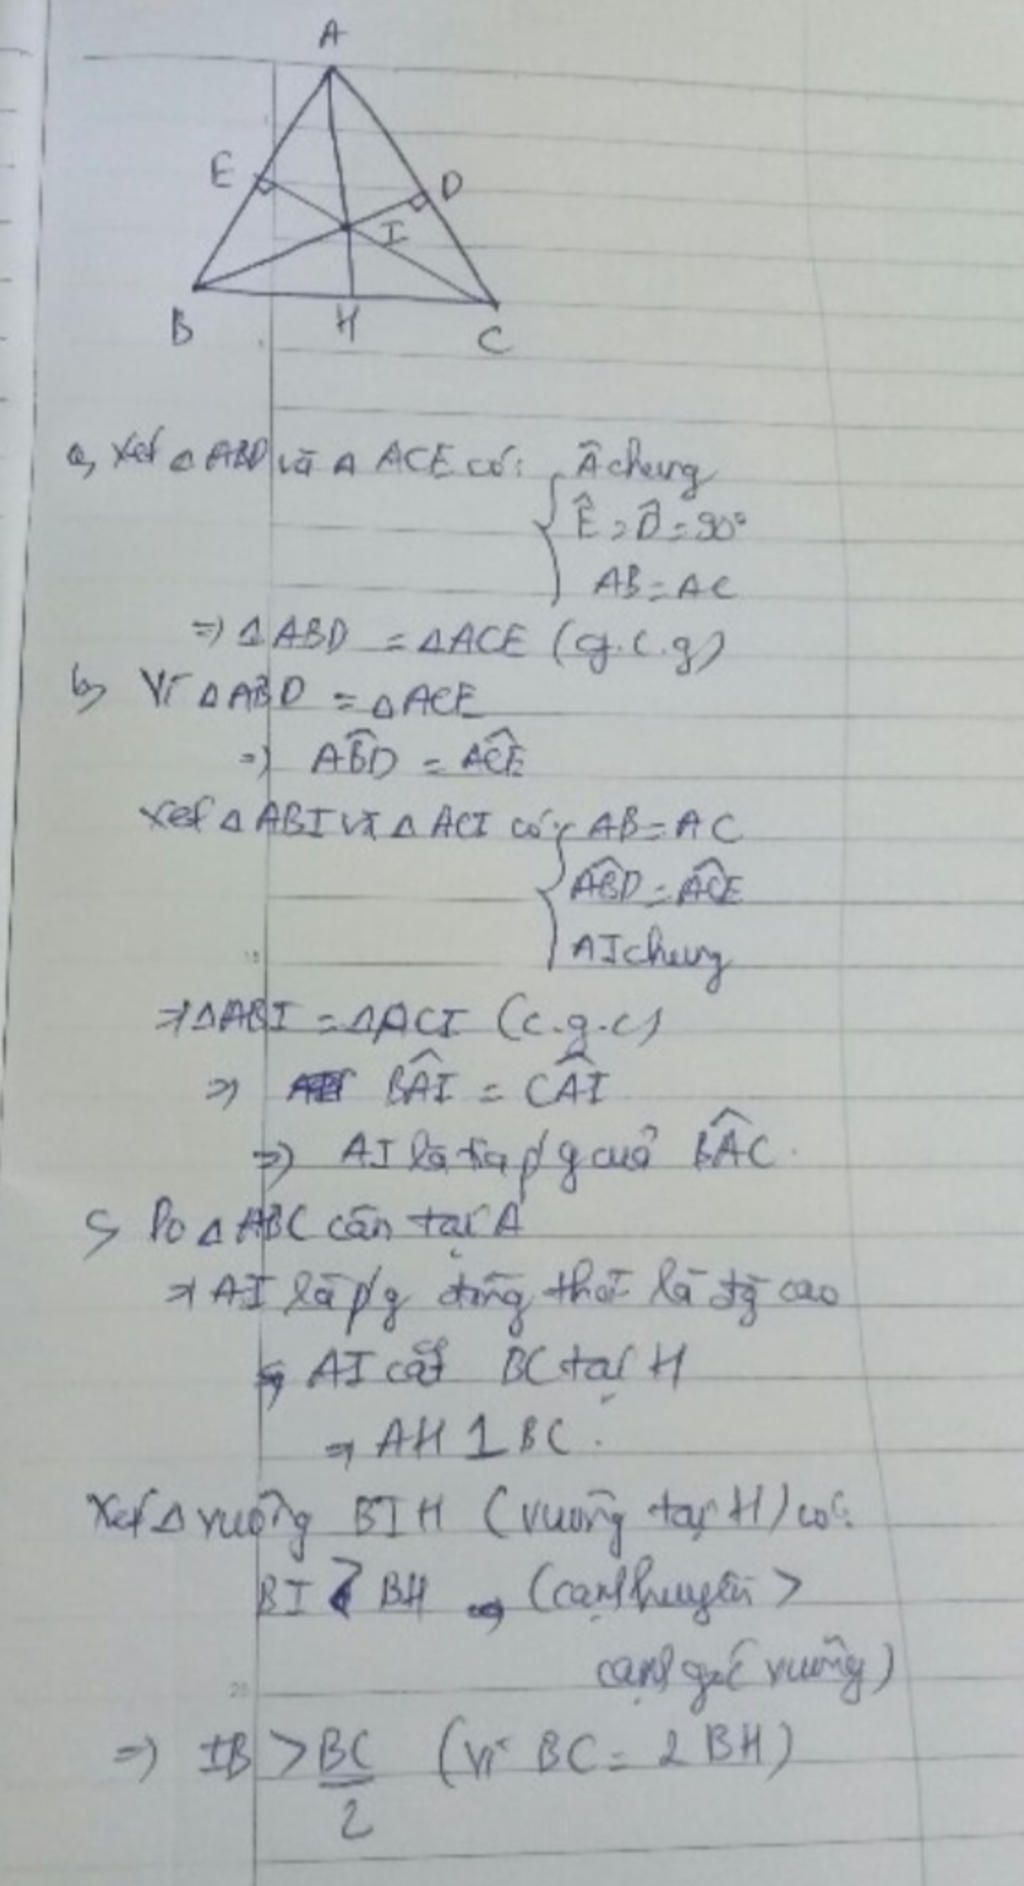 A
E
D
I
B
H
C
a, Xét △ABD và △ ACE có: Â chung
Ê = D̂ = 90°
AB = AC
=> △ABD = △ACE (g.c.g)
b, Vì △ABD = △ACE
=> ABD̂ = ACÊ
Xét △ABI và △ACI có: AB = AC
ABD̂ = ACÊ
AI chung
=> △ABI = △ACI (c.g.c)
=> BÂI = CÂI
=> AI là tia p/g của BÂC.
c, Do △ABC cân tại A
=> AI là p/g đồng thời là đg cao
AI cắt BC tại H
=> AH ⊥ BC.
Xét △ vuông BIH (vuông tại H) có:
BI > BH (cạnh huyền >
cạnh góc vuông)
=> IB > BC/2 (vì BC = 2BH)